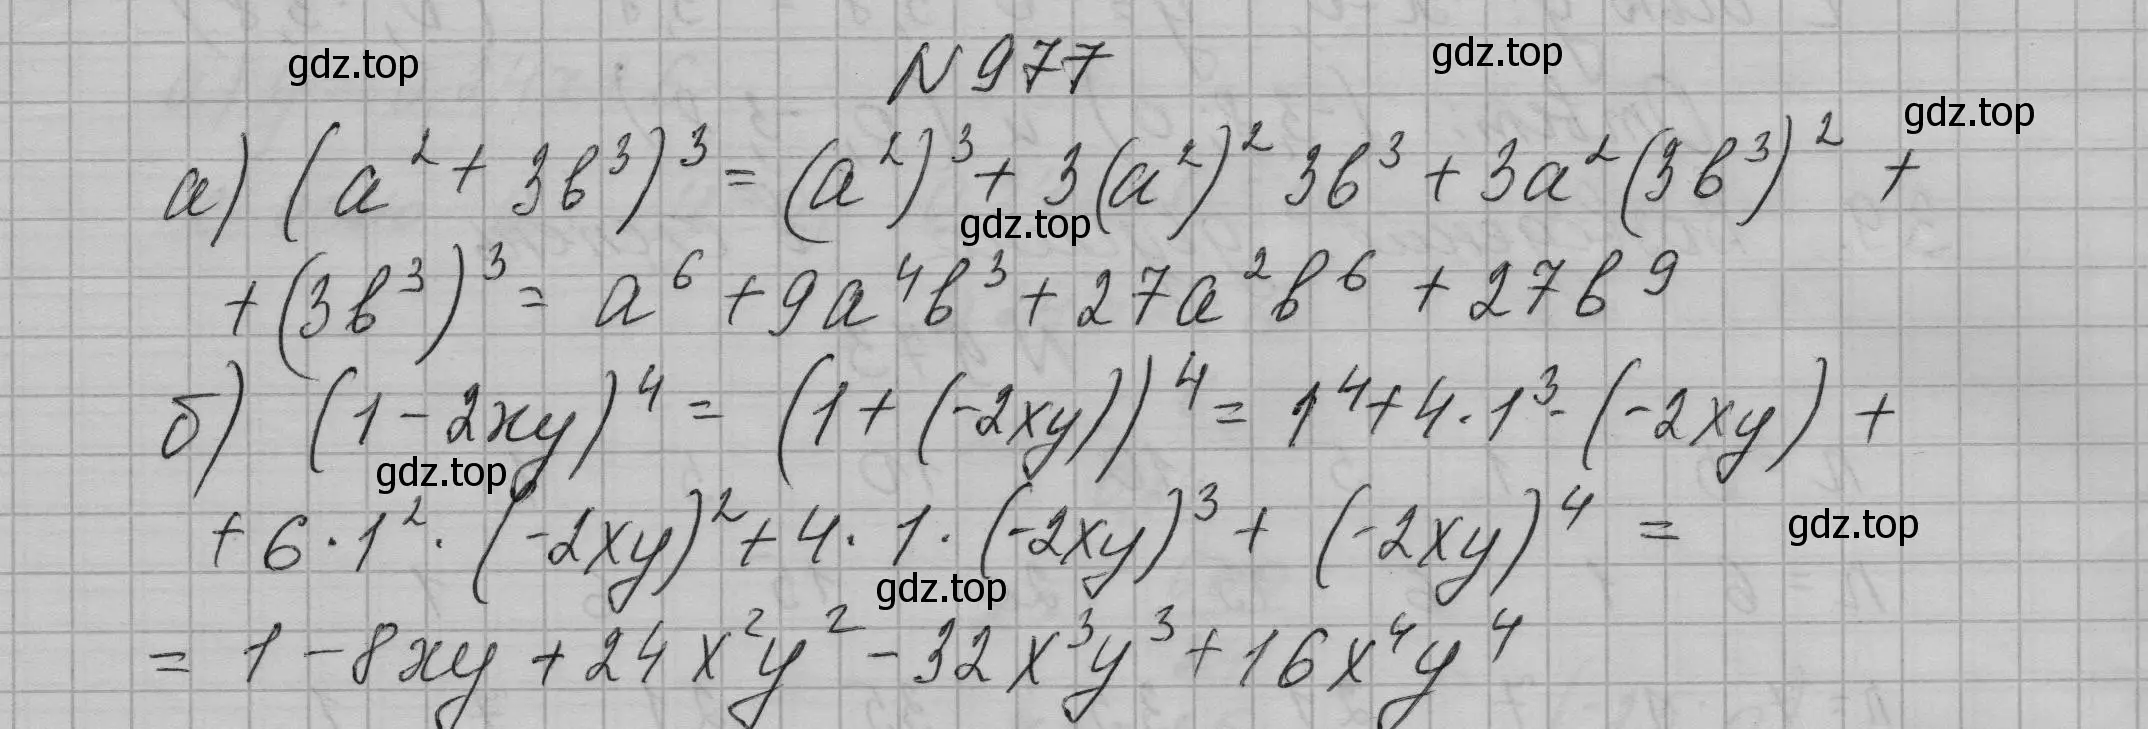 gdz.top
N 977
gdz.top
gdz.top
а) (a² + 3b³)³ = (a²)³ + 3(a²)² 3b³ + 3a² (3b³)² +
gdz.top
+ (3b³)³ = a⁶ + 9a⁴b³ + 27a²b⁶ + 27b⁹
б) (1 - 2xy)⁴ = (1 + (-2xy))⁴ = 1⁴ + 4 · 1³ · (-2xy) +
gdz.top
+ 6 · 1² · (-2xy)² + 4 · 1 · (-2xy)³ + (-2xy)⁴ =
gdz.top
gdz.top
= 1 - 8xy + 24x²y² - 32x³y³ + 16x⁴y⁴